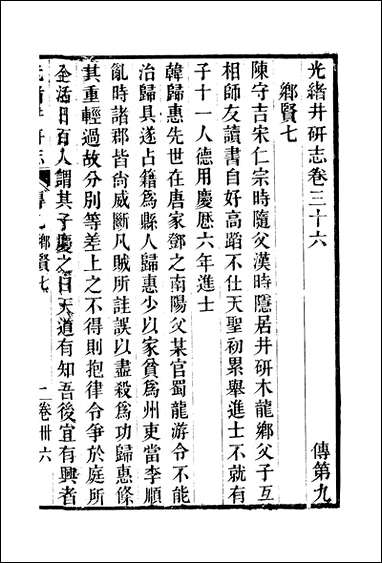 光緒井研志卷三十六　傳第九
鄉賢七
陳守吉宋仁宗時隨父漢時隱居井研木龍鄉父子互
相師友讀書自好高蹈不仕天聖初累舉進士不就有
子十一人德用慶歷六年進士
韓歸惠先世在唐家鄧之南陽父某官蜀龍游令不能
治歸具遂占籍為縣人歸惠少以家貧為州吏當李順
亂時諸郡皆尚威斷凡賊所詿誤以盡殺為功歸惠條
其重輕過故分別等差上之不得則抱律令爭於庭所
全活日百人謂其子慶之曰天道有知吾後宜有興者
鄉賢七　二卷卅六